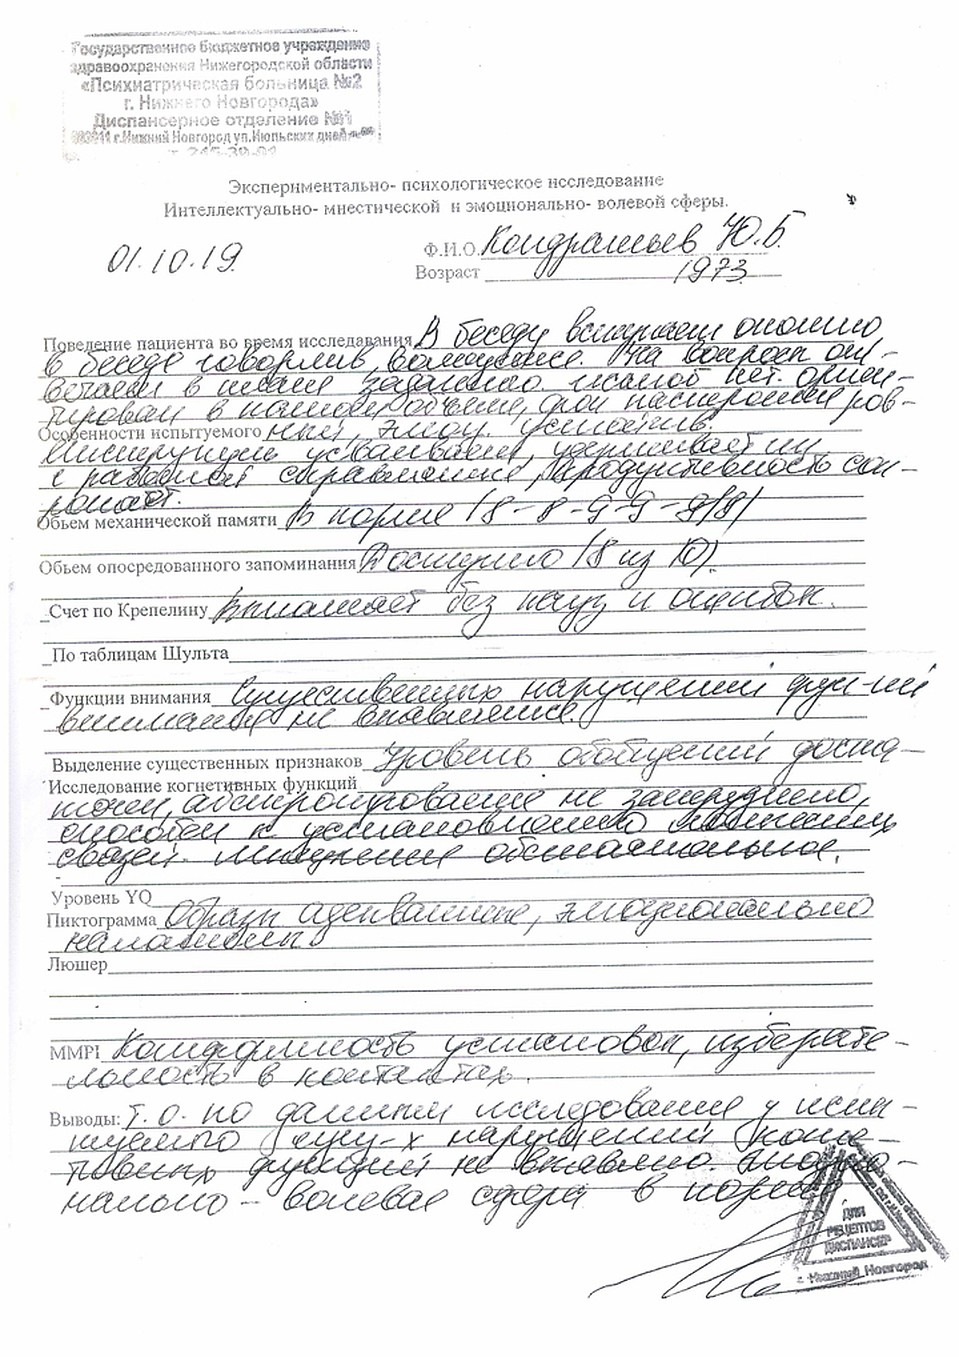 Государственное бюджетное учреждение
здравоохранения Нижегородской области
«Психиатрическая больница №2
г. Нижнего Новгорода»
Диспансерное отделение №1
г.Нижний Новгород ул.Июльских дней
т. 245-39-91
Экспериментально- психологическое исследование
Интеллектуально- мнестической и эмоционально- волевой сферы.
01.10.19.
Ф.И.О. Кондратьев Ю.Б.
Возраст 1973
Поведение пациента во время исследования В беседу вступает охотно
в беседе говорлив, . На вопросы от-
вечает в плане заданного жалоб нет. Ориен-
тирован в полном объеме, фон настроения ров-
Особенности испытуемого ный, эмоц. устойчив.
Инструкции усваивает, удерживает их
с работой справляется, продуктивность сох-
раняет.
Обьем механической памяти В норме (8-8-9-9-9/8/
Обьем опосредованного запоминания Доступно (8 из 10).
Счет по Крепелину Выполняет без пауз и ошибок.
По таблицам Шульта
Функции внимания Существенных нарушений функ-ий
внимания не выявляется.
Выделение существенных признаков Уровень обобщений доста-
Исследование когнетивных функций
точен, абстрагирование не затруднено,
способен к установлению логических
связей. Мышление обстоятельное.
Уровень YQ
Пиктограмма Образы адекватные, эмоционально
наполнены
Люшер
MMPI Конформность установок, избирате-
льность в контактах.
Выводы: Т.О. по данным исследования у испы-
туемого сущ-х нарушений когни-
тивных функций не выявлено. Эмоцио-
нально - волевая сфера в норме.
ДЛЯ
РЕЦЕПТОВ
ДИСПАНСЕР
г. Нижний Новгород